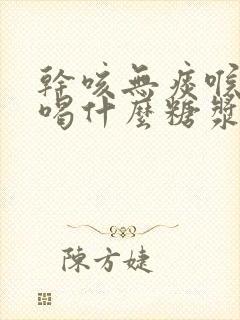 幹咳無痰喉
喝什麼糖漿
陳方婕